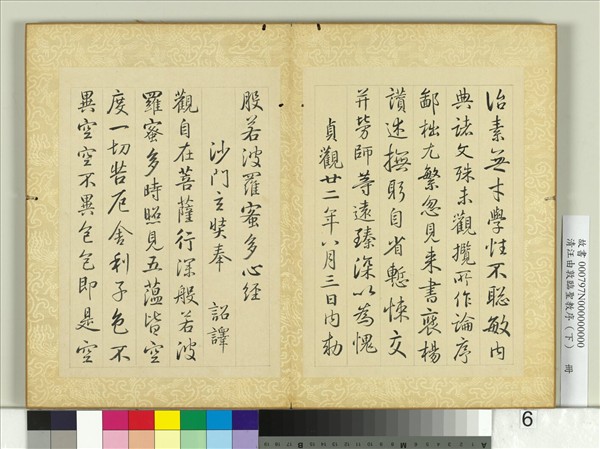 治素無才學性不聪敏内
典諸文殊未觀攬所作論序
鄙拙尤繁忽見来書褒楊
讚述撫躬自省慙悚交
并勞師等遠臻深以為愧
貞觀廿二年八月三日内勅
般若波羅蜜多心經
沙門玄奘奉 詔譯
觀自在菩薩行深般若波
羅蜜多時照見五蕴皆空
度一切苦厄舍利子色不
異空空不異色色即是空
故書000797N000000000
清汪由敦臨聖教序(下) 冊
6